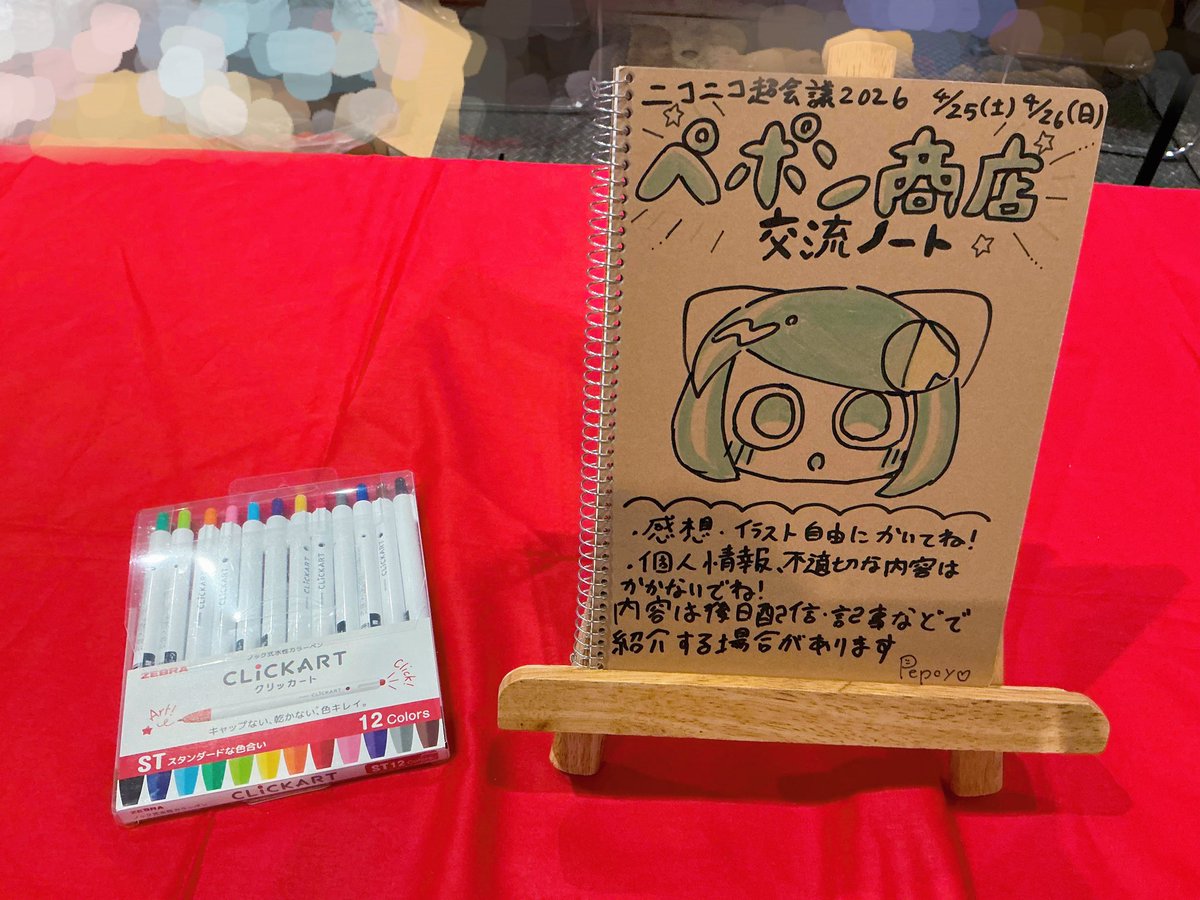 ニコニコ超会議2026 4/25(土) 4/26(日)
ペポン商店
交流ノート
・感想・イラスト自由にかいてね!
・個人情報、不適切な内容は
かかないでね!
内容は後日配信・記事などで
紹介する場合があります
Pepoyo
ノック式水性カラーペン
ZEBRA
CLiCKART
クリッカート
Click!
Art!
キャップない、乾かない、色キレイ。
12 Colors
ST スタンダードな色合い
CLiCKART
ST12
ZEBRA
CLiCKART
CLiCKART
CLiCKART